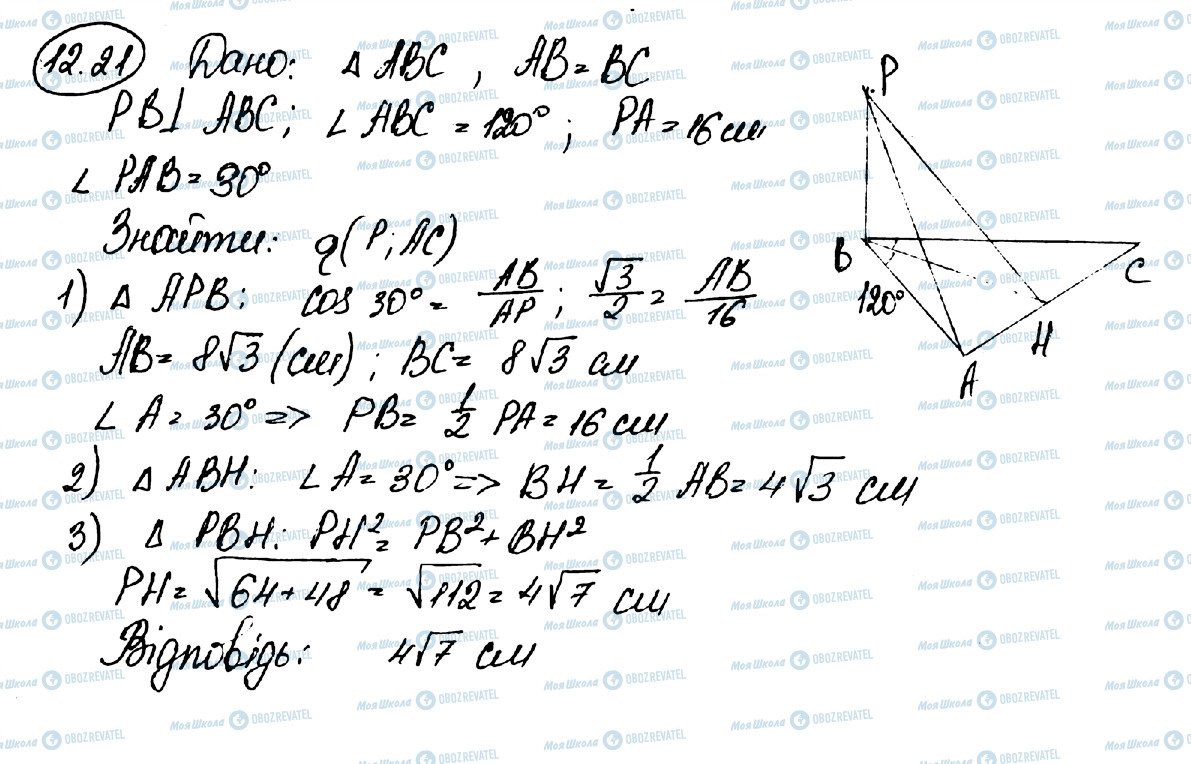 12.21 Дано: Δ ABC, AB = BC
PB⊥ ABC; ∠ ABC = 120°; PA = 16 см
∠ PAB = 30°
Знайти: q(P; AC)
1) Δ APB: cos 30° = AB/AP; √3/2 = AB/16
AB = 8√3 (см); BC = 8√3 см
∠ A = 30° => PB = 1/2 PA = 16 см
2) Δ ABH: ∠A = 30° => BH = 1/2 AB = 4√3 см
3) Δ PBH: PH² = PB² + BH²
PH = √64+48 = √112 = 4√7 см
Відповідь: 4√7 см
P
B
C
120°
H
A
МояШкола OBOZREVATEL